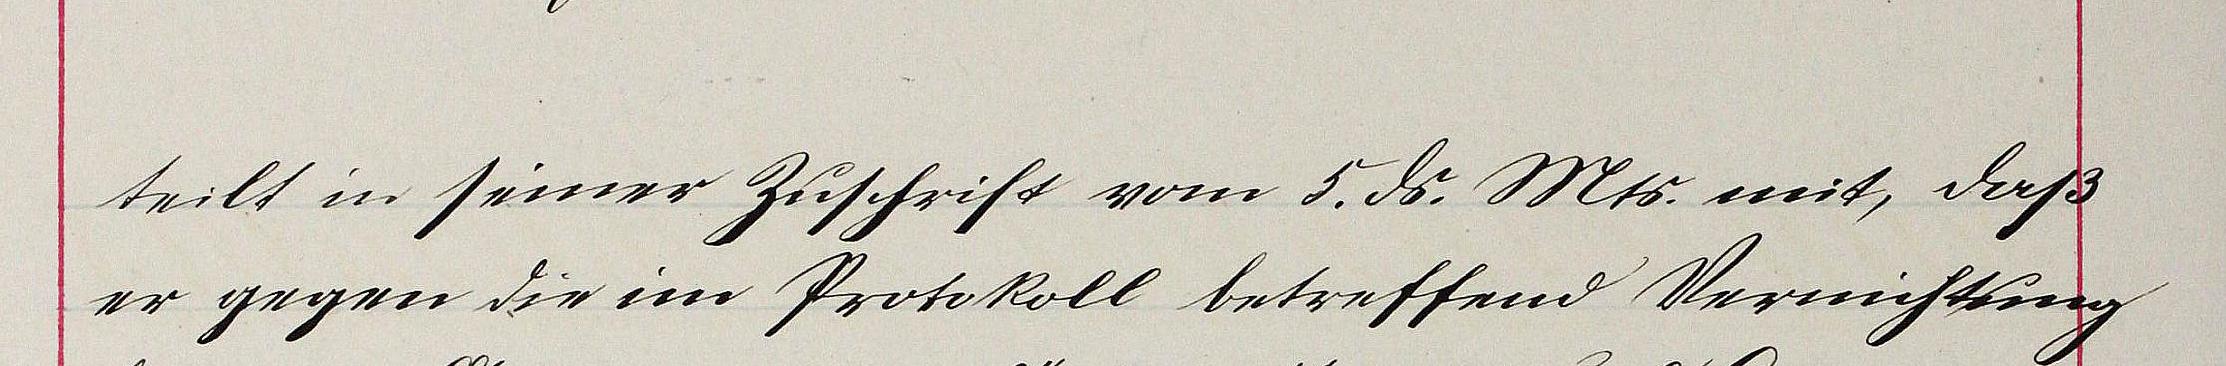 teilt in seiner Zuschrift vom 5. ds. Mts. mit, daß
er gegen die im Protokoll betreffend Vernichtung